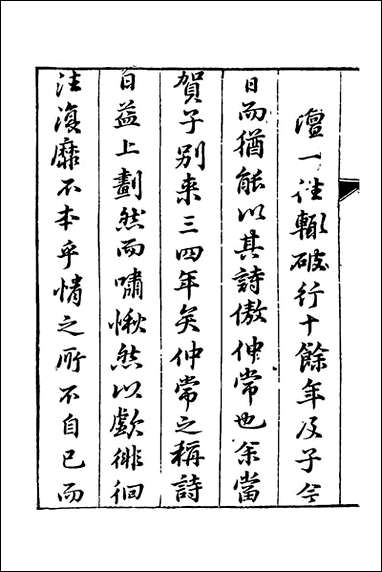 壇一往輙破行十餘年及子今
日而猶能以其詩傲仲常也余當
賀子别来三四年矣仲常之稱詩
日益上劃然而嘯愀然以歔徘徊
往復靡不本乎情之所不自已而